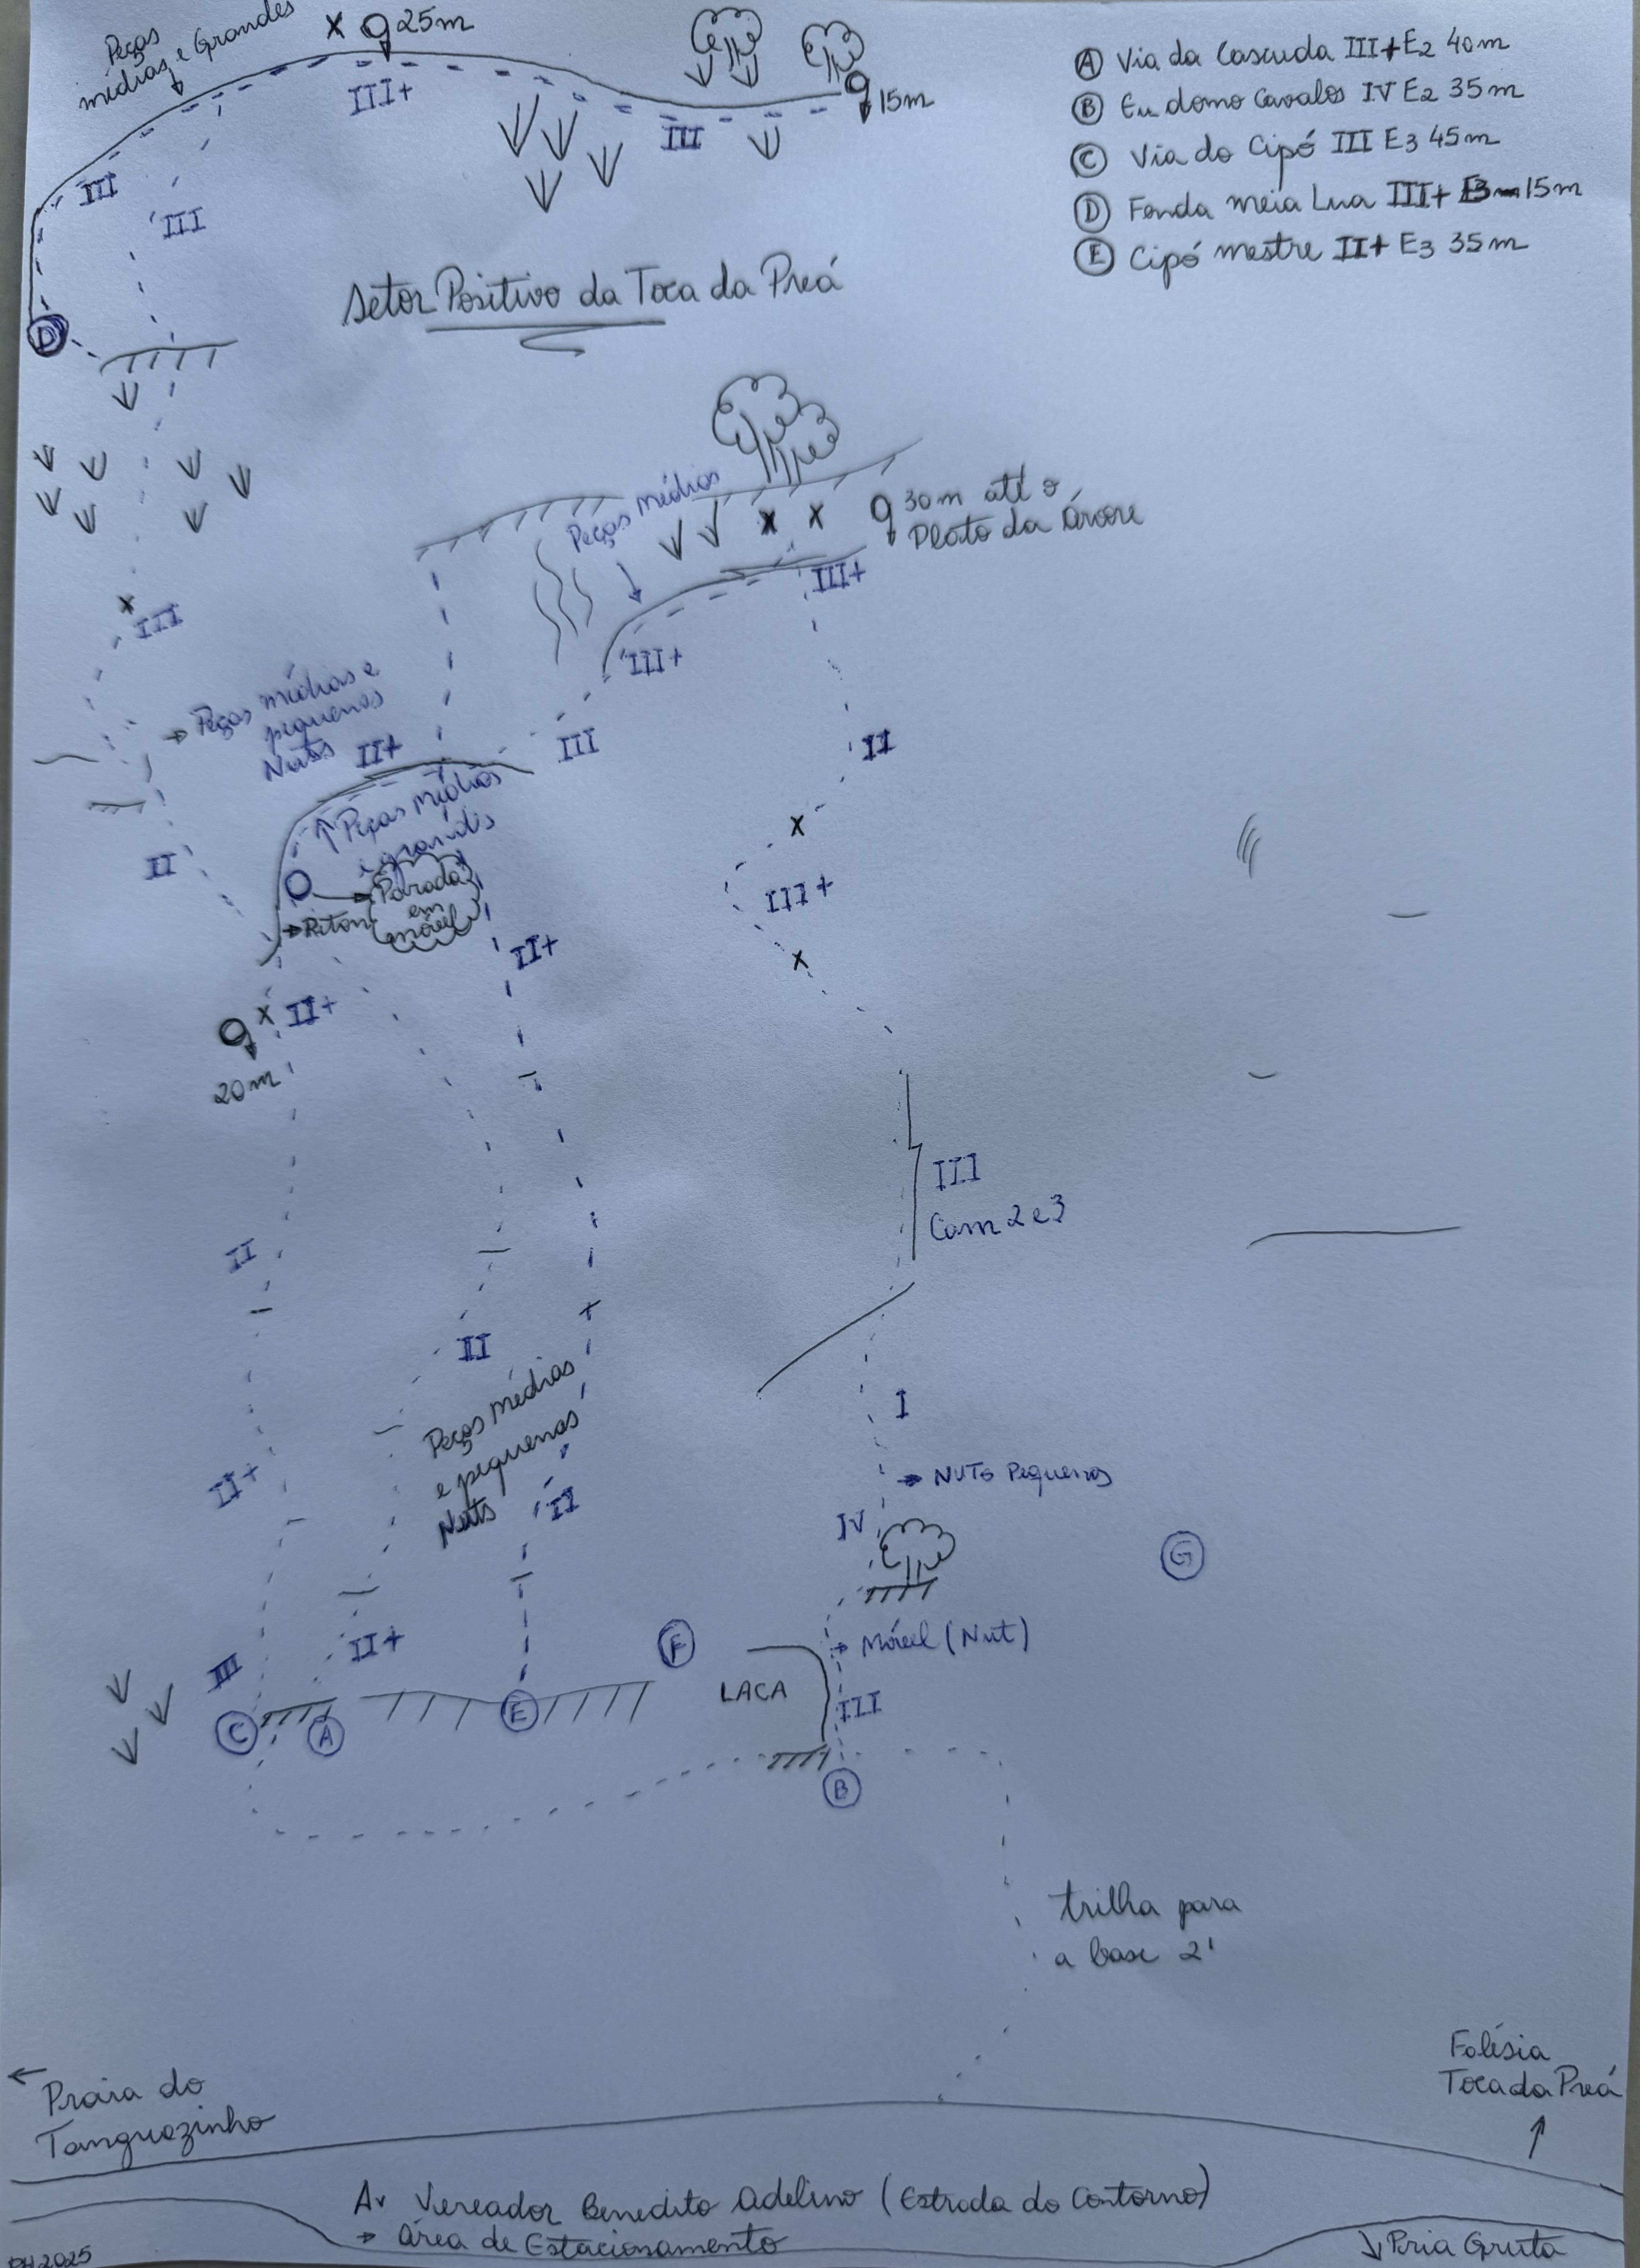 Peças
médias e Grandes
X 25m
III+
15m
III
III
III
D
A Via da Cascuda III+ E2 40m
B Eu domo Cavalos IV E2 35m
C Via do Cipó III E3 45m
D Fenda meia Lua III+ 15m
E Cipó mestre II+ E3 35m
Setor Positivo da Toca da Preá
Peças médias
X X
30m até o
Plato da Árvore
III+
III+
X
III
Peças médias e
pequenas
Nuts
II+
III
II
Peças médias
e grandes
X
II
III+
Parada
em
móvel
Piton
II+
X
X II+
20m
III
Cam 2 e 3
II
II
I
Peças médias
e pequenas
Nuts
II+
II
Nuts Pequenos
IV
G
Móvel (Nut)
F
II+
III
LACA
III
C
A
E
B
trilha para
a base 2'
Falésia
Toca da Preá
Praia do
Tanguazinho
Av Vereador Benedito Adelino (Estrada do Contorno)
Área de Estacionamento
Pria Gruta
PH 2025